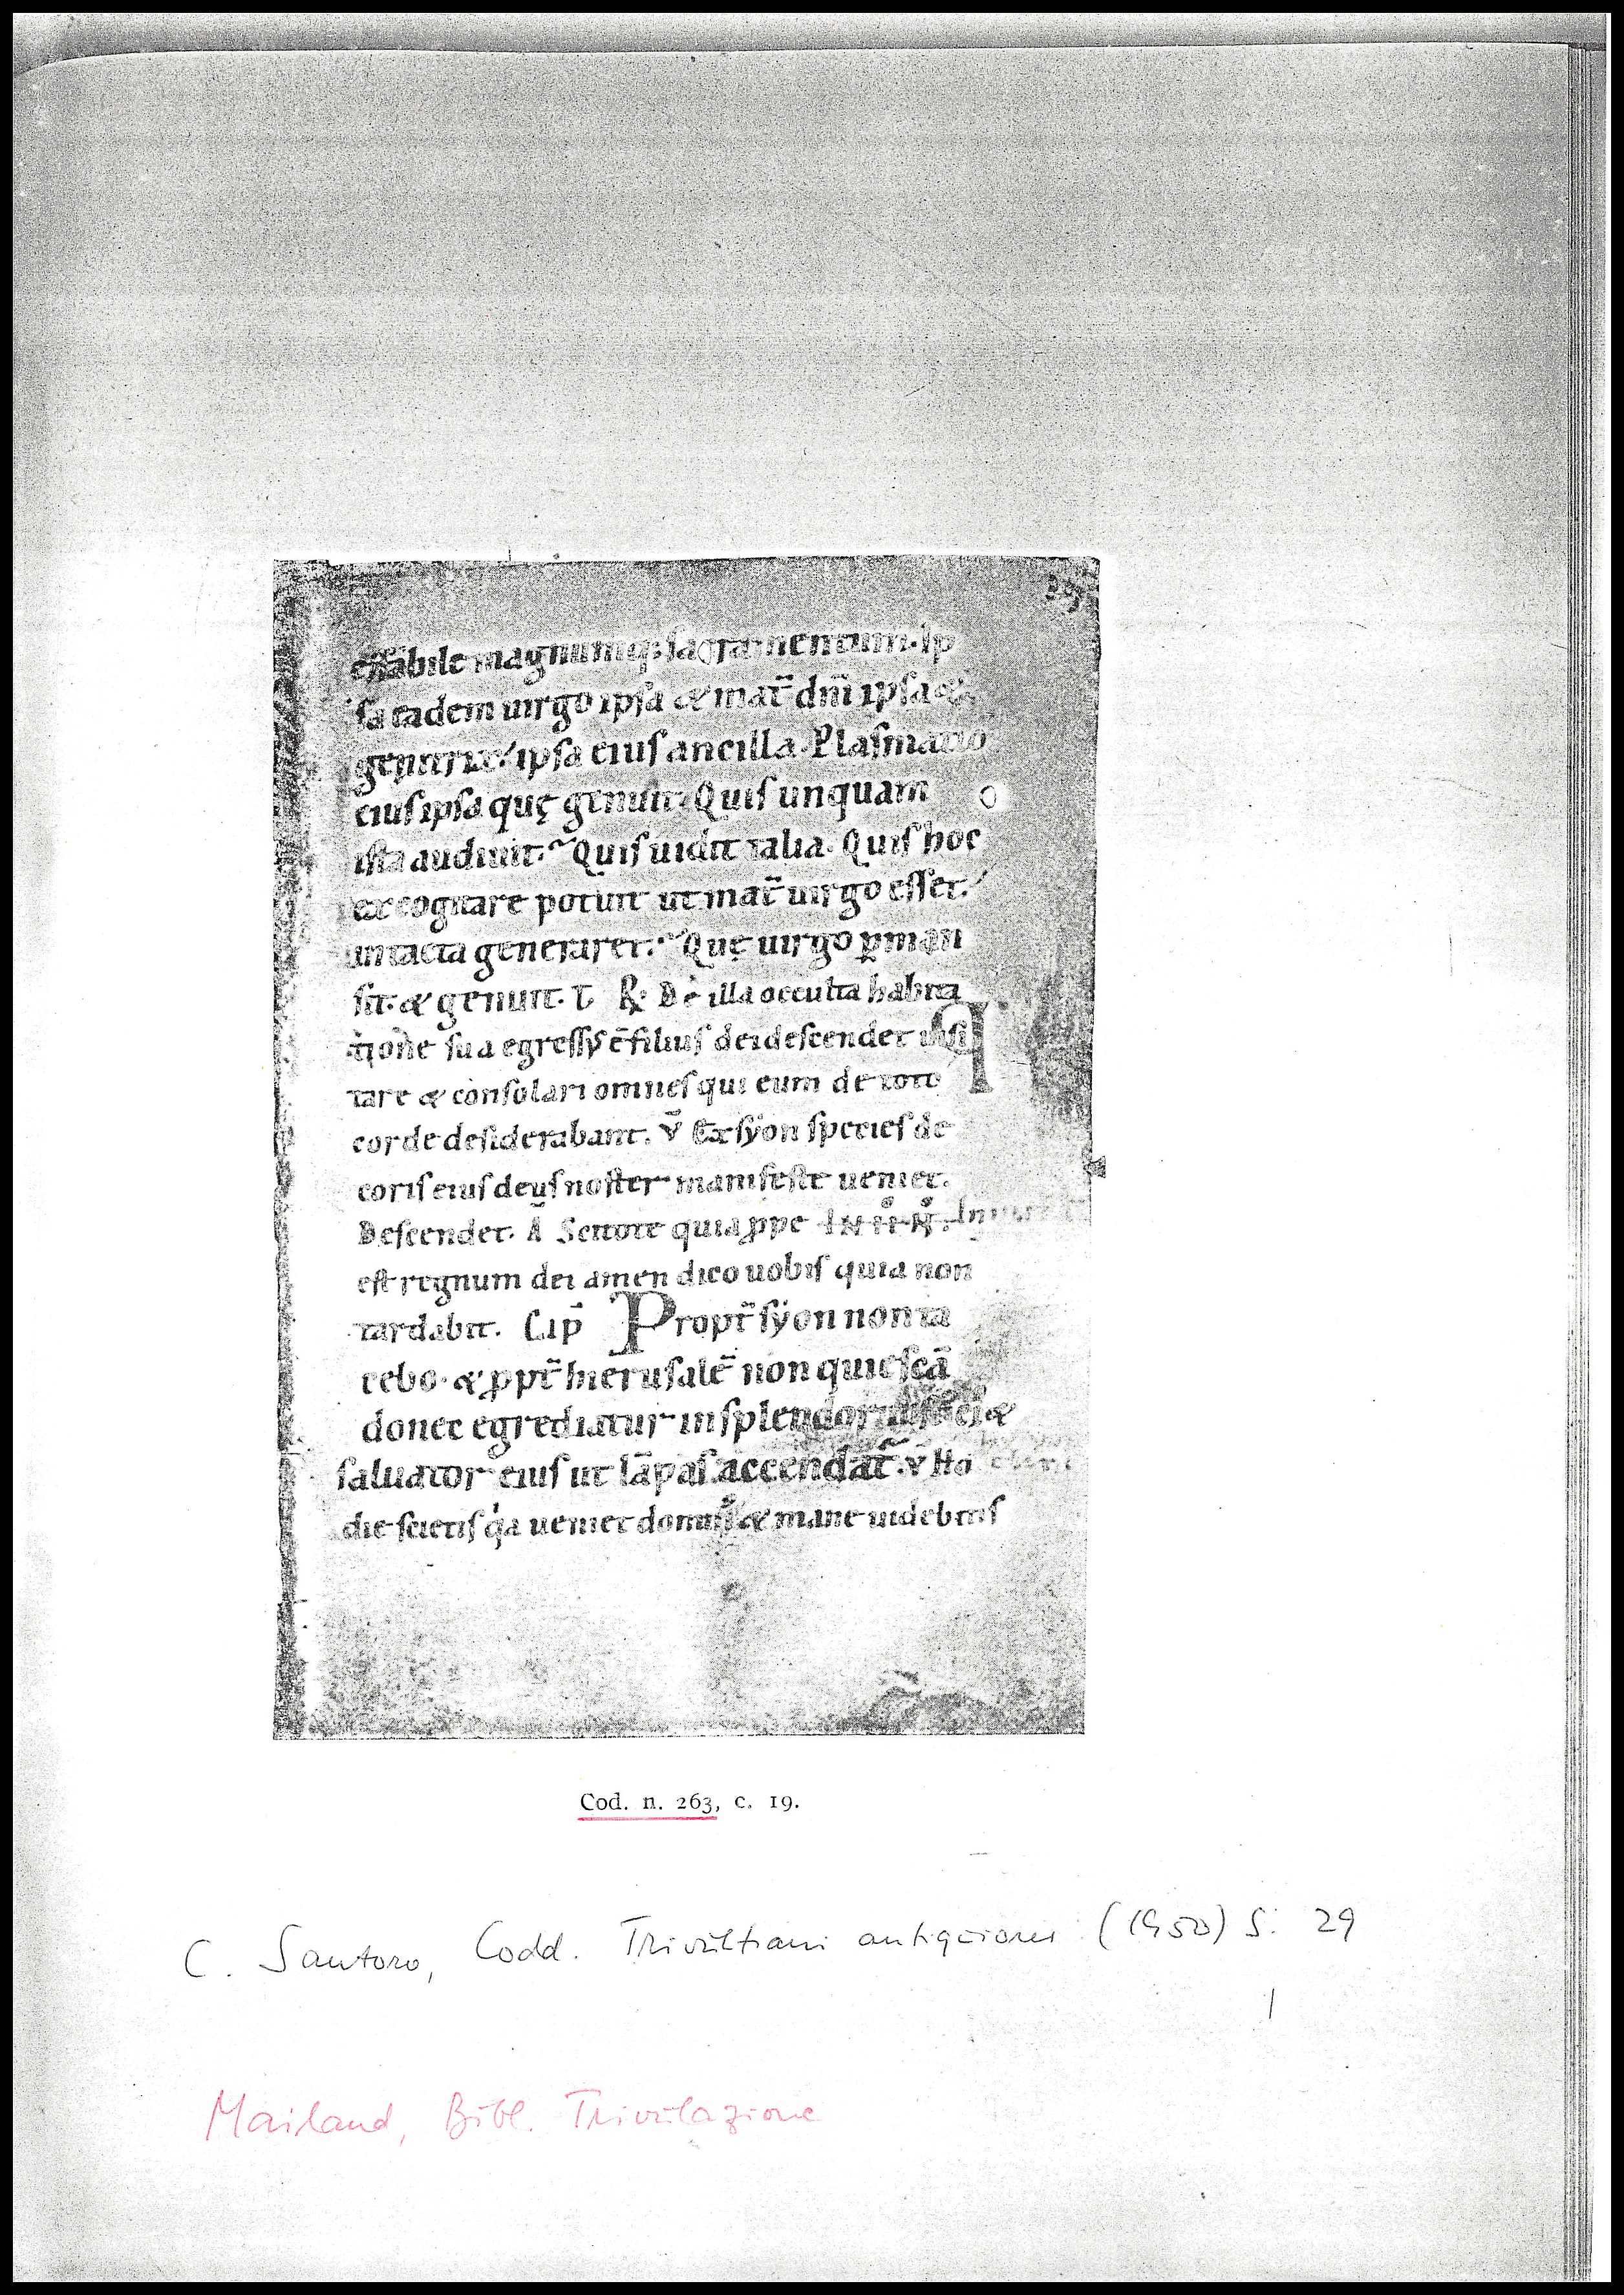 effabile magnumq; sacramentum. Ip
sa eadem uirgo ipsa & mat̄ dn̄i ipsa &
genitrix ipsa eius ancilla. Plasmatio
eius ipsa quę genuit. Quis unquam
ista audiuit. Quis uidit talia. Quis hoc
excogitare potuit ut mat̄ uirgo esset.
intacta generaret. Quę uirgo ꝑman
sit. & genuit. T ℟ De illa occulta habita
tione sua egressus ē filius dei descendet uisi
tare & consolari omnes qui eum de toto
corde desiderabant. v̄ Ex syon species de
coris eius deus noster manifeste ueniet.
Descendet. Ā Scitote quia ꝓpe
est regnum dei amen dico uobis quia non
tardabit. Cap̄ Propt̄ syon non ta
cebo. & ꝓpt̄ hierusalē non quiescā
donec egrediatur ut splendor &
saluator eius ut lāpas accendat̄. v Ho
die scietis qa ueniet dominus & mane uidebitis
Cod. n. 263, c. 19.
C. Santoro, Codd. Trivultiani antiquiores (1950) S. 29
Mailand, Bibl. Trivulziana